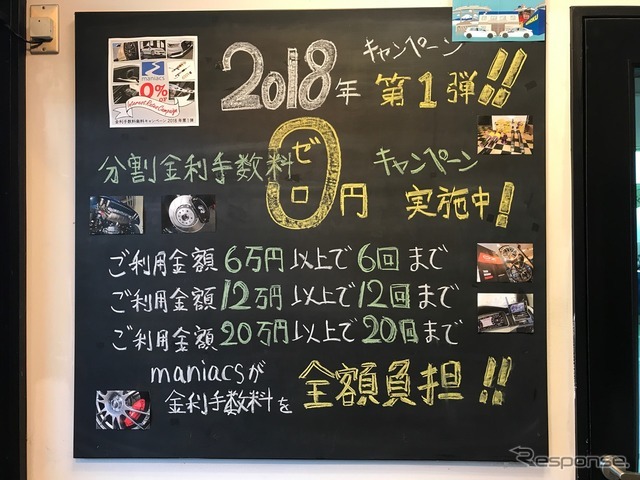 maniacs
0% OFF
Interest Rates Campaign
金利手数料無料キャンペーン 2018 年第 1 弾
2018年 キャンペーン 第1弾!!
分割金利手数料 ゼロ 0円 キャンペーン 実施中!
ご利用金額 6万円以上で 6回 まで
ご利用金額 12万円以上で 12回まで
ご利用金額 20万円以上で 20回まで
maniacsが
金利手数料を 全額負担!!
Response.